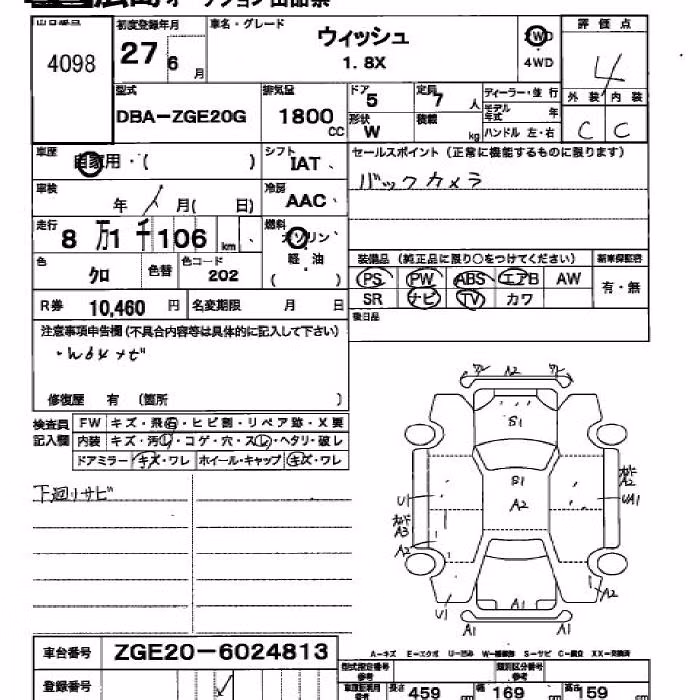 広島オークション出品票
出品番号 4098
初度登録年月 27 6月
車名・グレード ウィッシュ 1.8X
2WD 4WD
評価点 4
外装 C 内装 C
型式 DBA-ZGE20G
排気量 1800 CC
ドア 5 定員 7 人
形状 W 積載 kg
ディーラー・並行
モデル年式 年
ハンドル 左・右
車歴 自家用・( )
シフト IAT、
セールスポイント (正常に機能するものに限ります)
バックカメラ
車検 年 月( 日)
冷房 AAC、
走行 8万1千106 km、
燃料 ガソリン・軽油 ( )
色 クロ 色替 色コード 202
装備品 (純正品に限り○をつけてください) 新車保証書
PS PW ABS エアB AW 有・無
SR ナビ TV カワ
R券 10,460 円 名変期限 月 日
後日品
注意事項申告欄 (不具合内容等は具体的に記入して下さい)
修復歴 有 (箇所 )
検査員記入欄
FW キズ・飛石・ヒビ割・リペア跡・X要
内装 キズ・汚れ・コゲ・穴・スレ・ヘタリ・破レ
ドアミラー キズ・ワレ ホイール・キャップ キズ・ワレ
下廻りサビ
A2
S1
S1
A2
U1
A3
A2
U1
A2
UA1
A2
A1
A1
A-キズ E-エクボ U-凹み W-補修跡 S-サビ C-腐食 XX-交換済
車台番号 ZGE20-6024813
登録番号
型式指定番号 参考
類別区分番号 参考
長さ 459 cm 幅 169 cm 高さ 159 cm